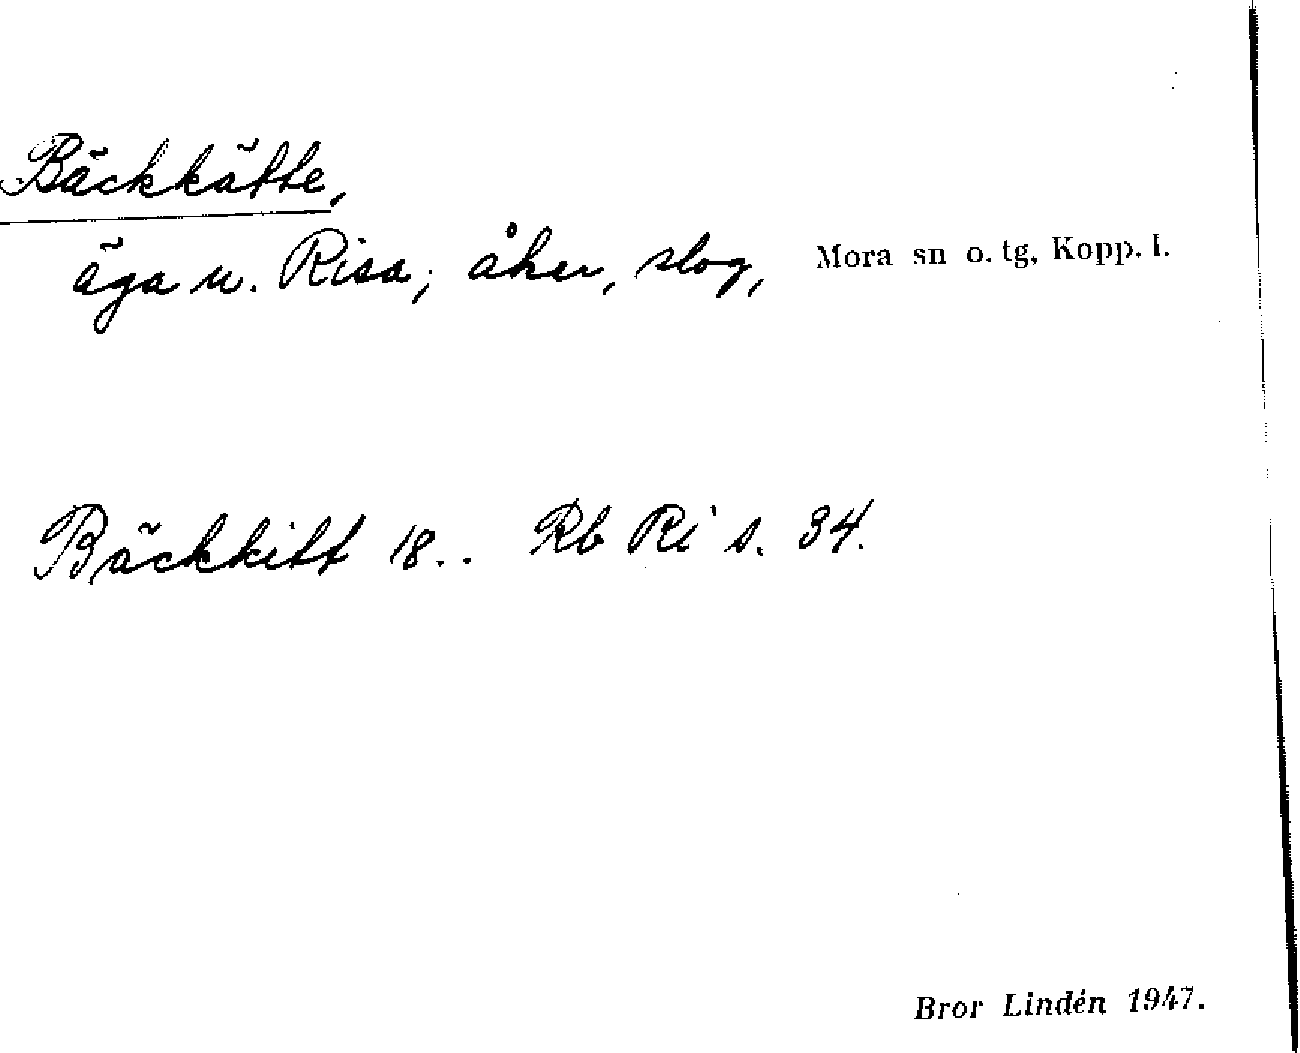 Bäckkätte,
äga u. Risa; åker, slog, Mora sn o. tg, Kopp. l.
Bäckkitt 18.. Rb Ri s. 34.
Bror Lindén 1947.